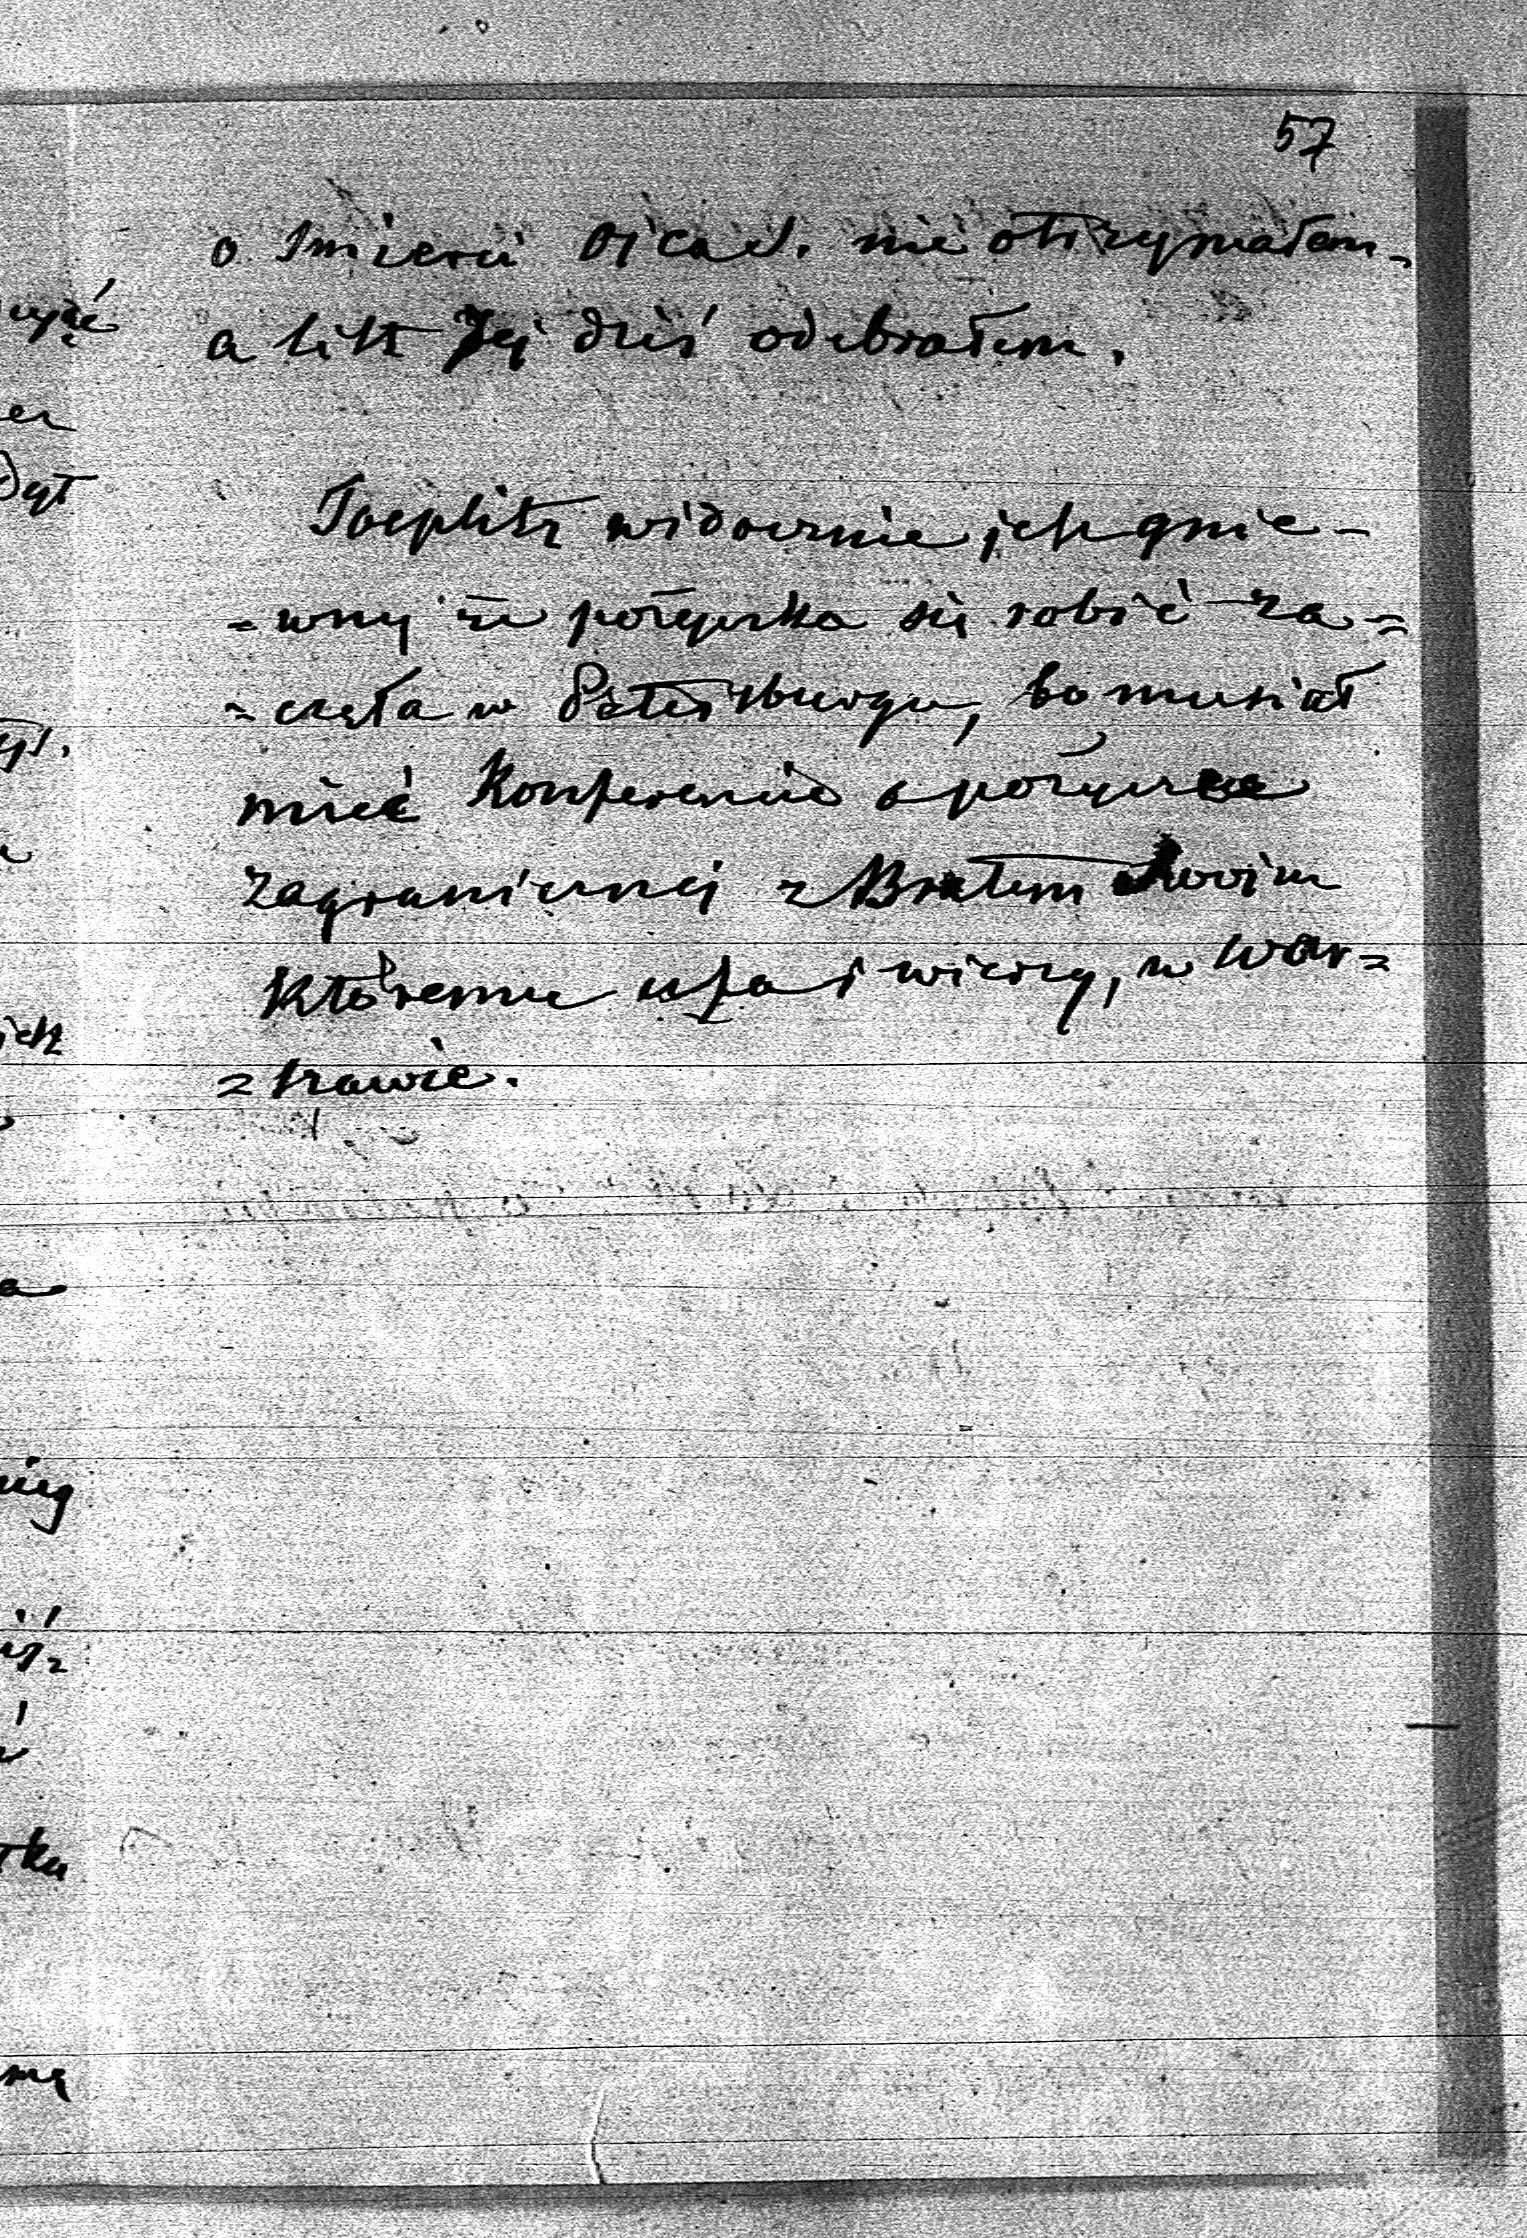 57
o śmierci Ojca d. nie otrzymałem
a list Jej dziś odebrałem.
Toeplitz widocznie jest gnie-
=wny że pożyczka się robić za=
=częła w Petersburgu, bo musiał
mieć Konferencie o pożyczce
zagranicznej z Bratem Swoim
któremu ufa i wierzy, w War=
=szawie.